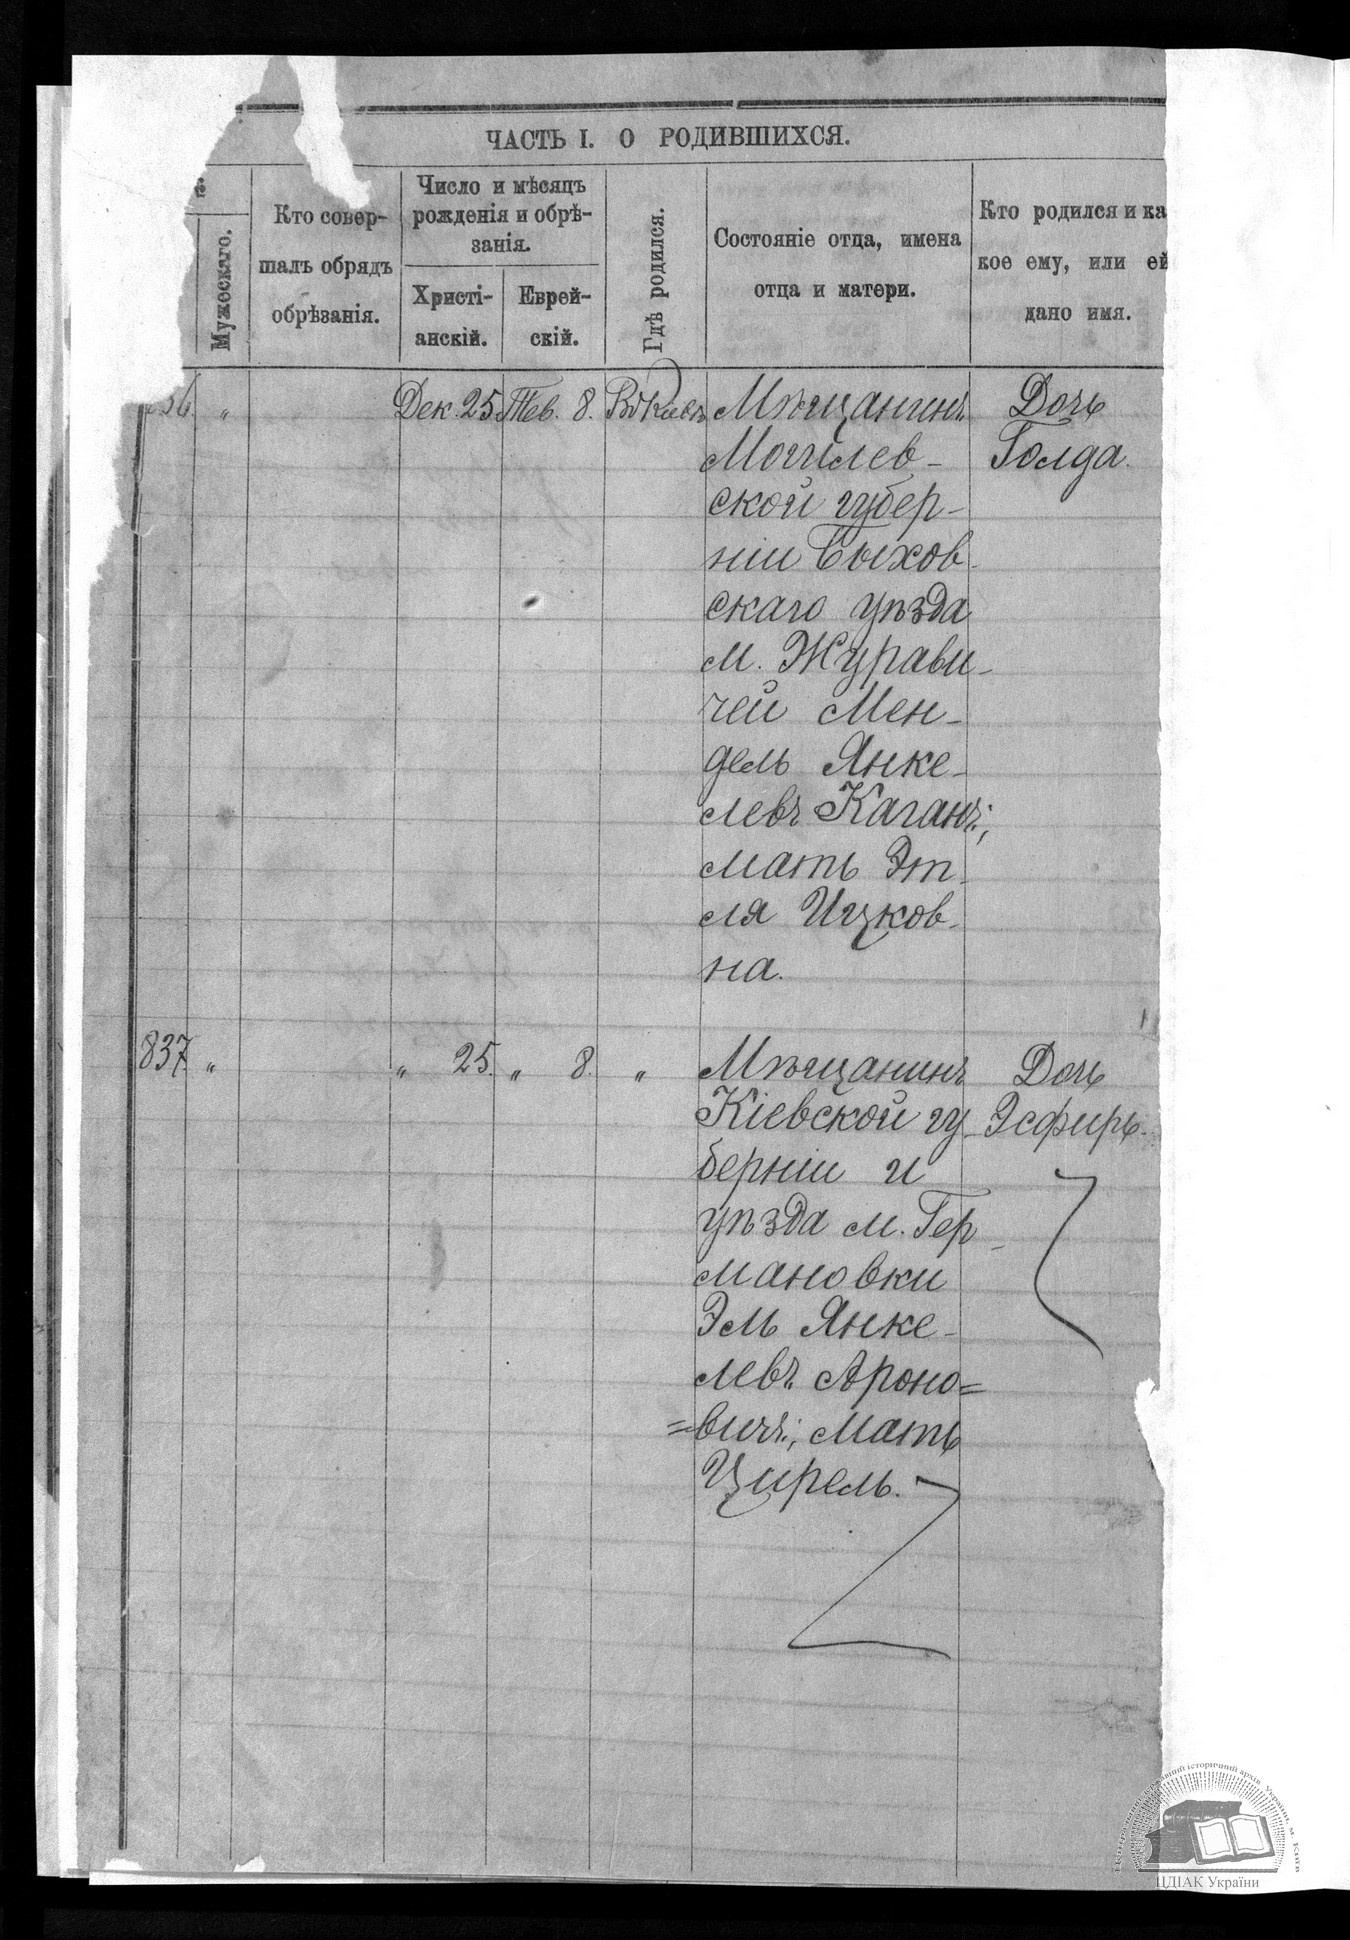 ЧАСТЬ I. О РОДИВШИХСЯ.
Мужескаго.
Кто совер-
шалъ обрядъ
обрѣзанія.
Число и мѣсяцъ
рожденія и обрѣ-
занія.
Христі-
анскій.
Еврей-
скій.
Гдѣ родился.
Состояніе отца, имена
отца и матери.
Кто родился и ка
кое ему, или ей
дано имя.
836 " Дек. 25 Тев. 8. Въ Кіевѣ Мѣщанинъ Дочь
Могилев- Голда.
ской губер-
ніи Быхов-
скаго уѣзда
м. Журави-
чей Мен-
дель Янке-
левъ Каганъ;
мать Эт-
ля Ицков-
на.
837 " " 25. " 8. " Мѣщанинъ Дочь
Кіевской гу- Эсфирь.
берніи и
уѣзда м. Гер-
мановки
Эль Янке-
левъ Ароно=
=вичъ; мать
Цирель.
Центральний державний історичний архів України, м. Київ
ЦДІАК України